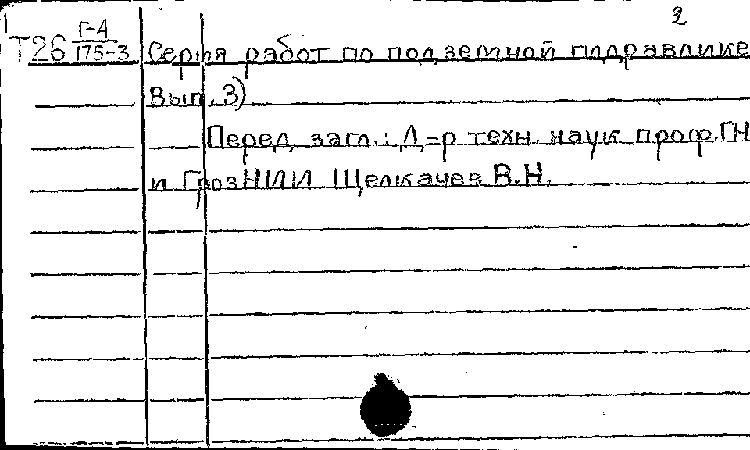 2
Т26 Г-4/175-3 Серия работ по подземной гидравлике
Вып. 3)
Перед загл.: Д-р техн. наук проф. ГНИ
и ГрозНИИ Щелкачев В.Н.